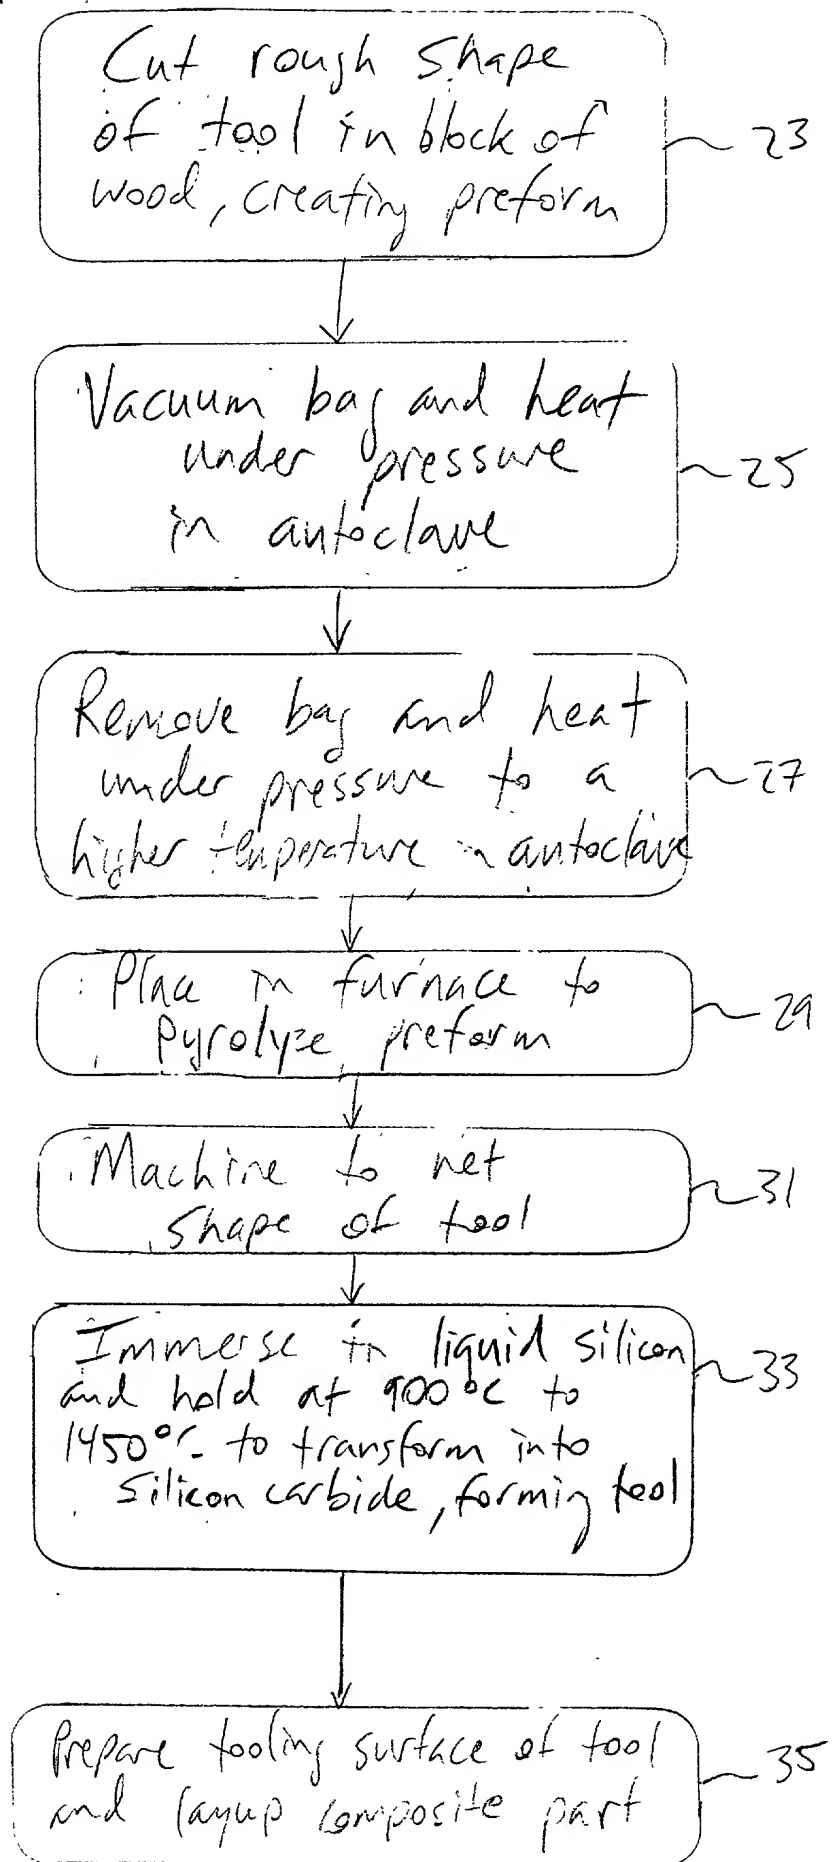 Cut rough shape
of tool in block of
wood, creating preform
23
Vacuum bag and heat
under pressure
in autoclave
25
Remove bag and heat
under pressure to a
higher temperature in autoclave
27
Place in furnace to
pyrolyze preform
29
Machine to net
shape of tool
31
Immerse in liquid silicon
and hold at 900°C to
1450°C to transform into
silicon carbide, forming tool
33
Prepare tooling surface of tool
and layup composite part
35